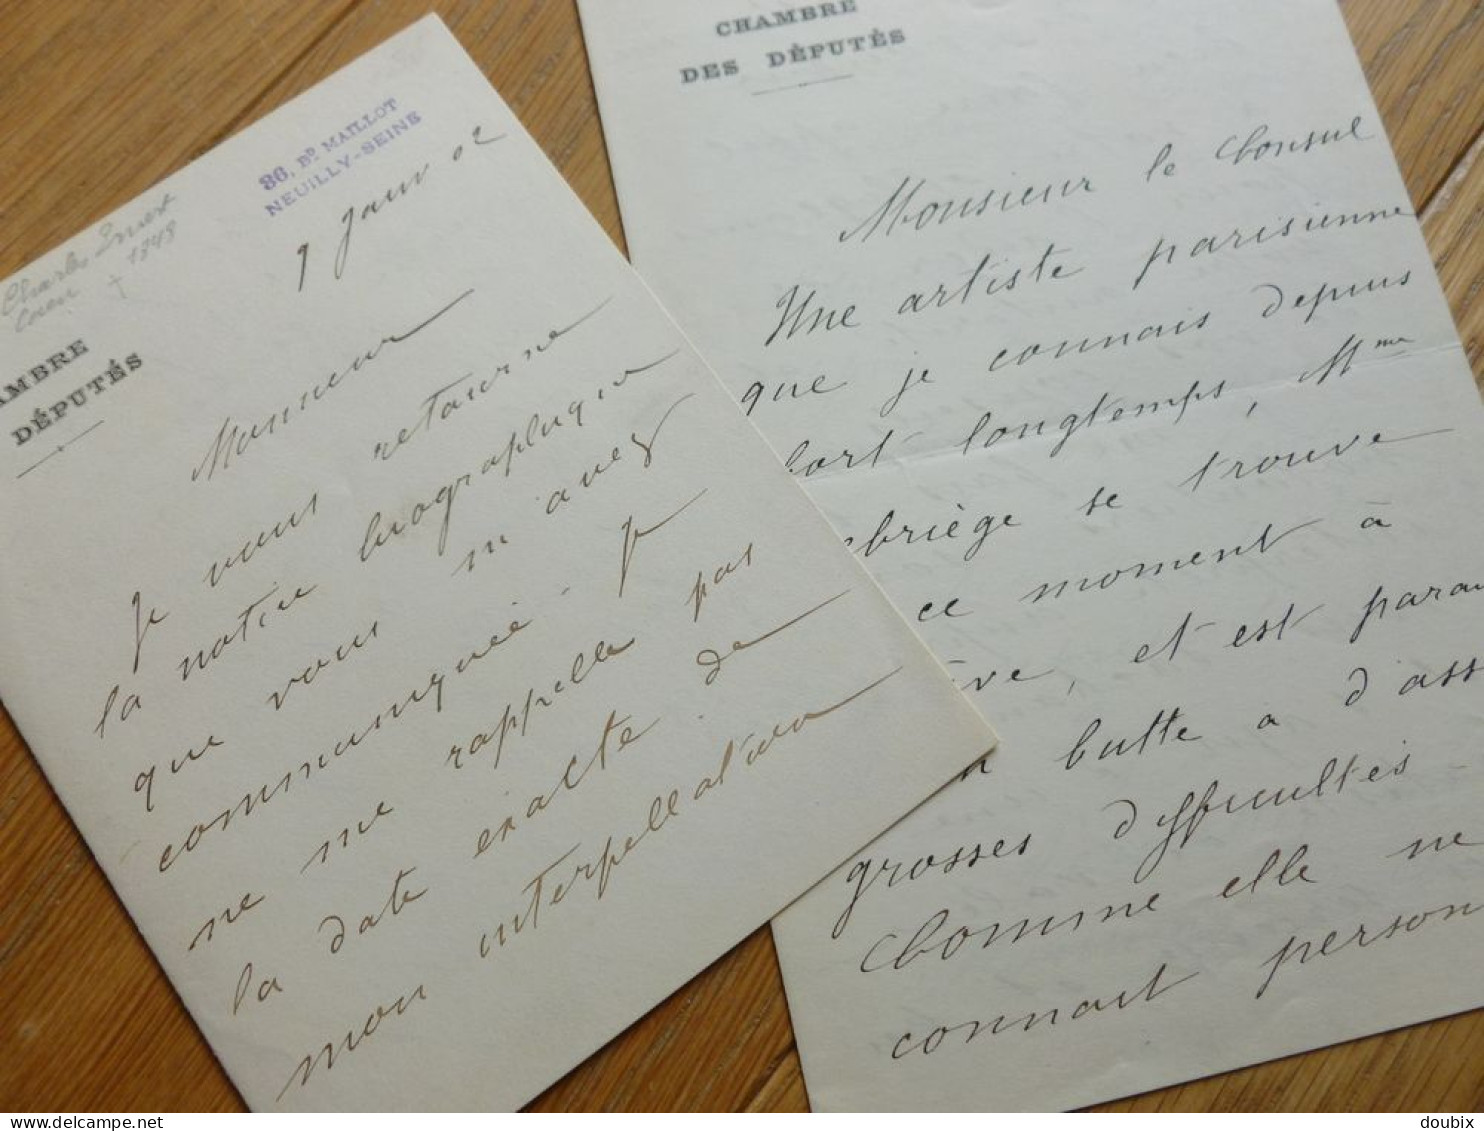 Charles Ernest
Caen + 1848
86, Bᴰ MAILLOT
NEUILLY-SEINE
AMBRE
DÉPUTÉS
9 Janv 02
Monsieur
Je vous retourne
la notice biographique
que vous m'avez
communiquée. Je
ne me rappelle pas
la date exacte de
mon interpellation
CHAMBRE
DES DÉPUTÉS
Monsieur le Consul
Une artiste parisienne
que je connais depuis
fort longtemps, Mme
briège se trouve
ce moment à
ève, et est parai
butte a d'ass
grosses difficultés -
Comme elle ne
connait person
delcampe.net
doubix